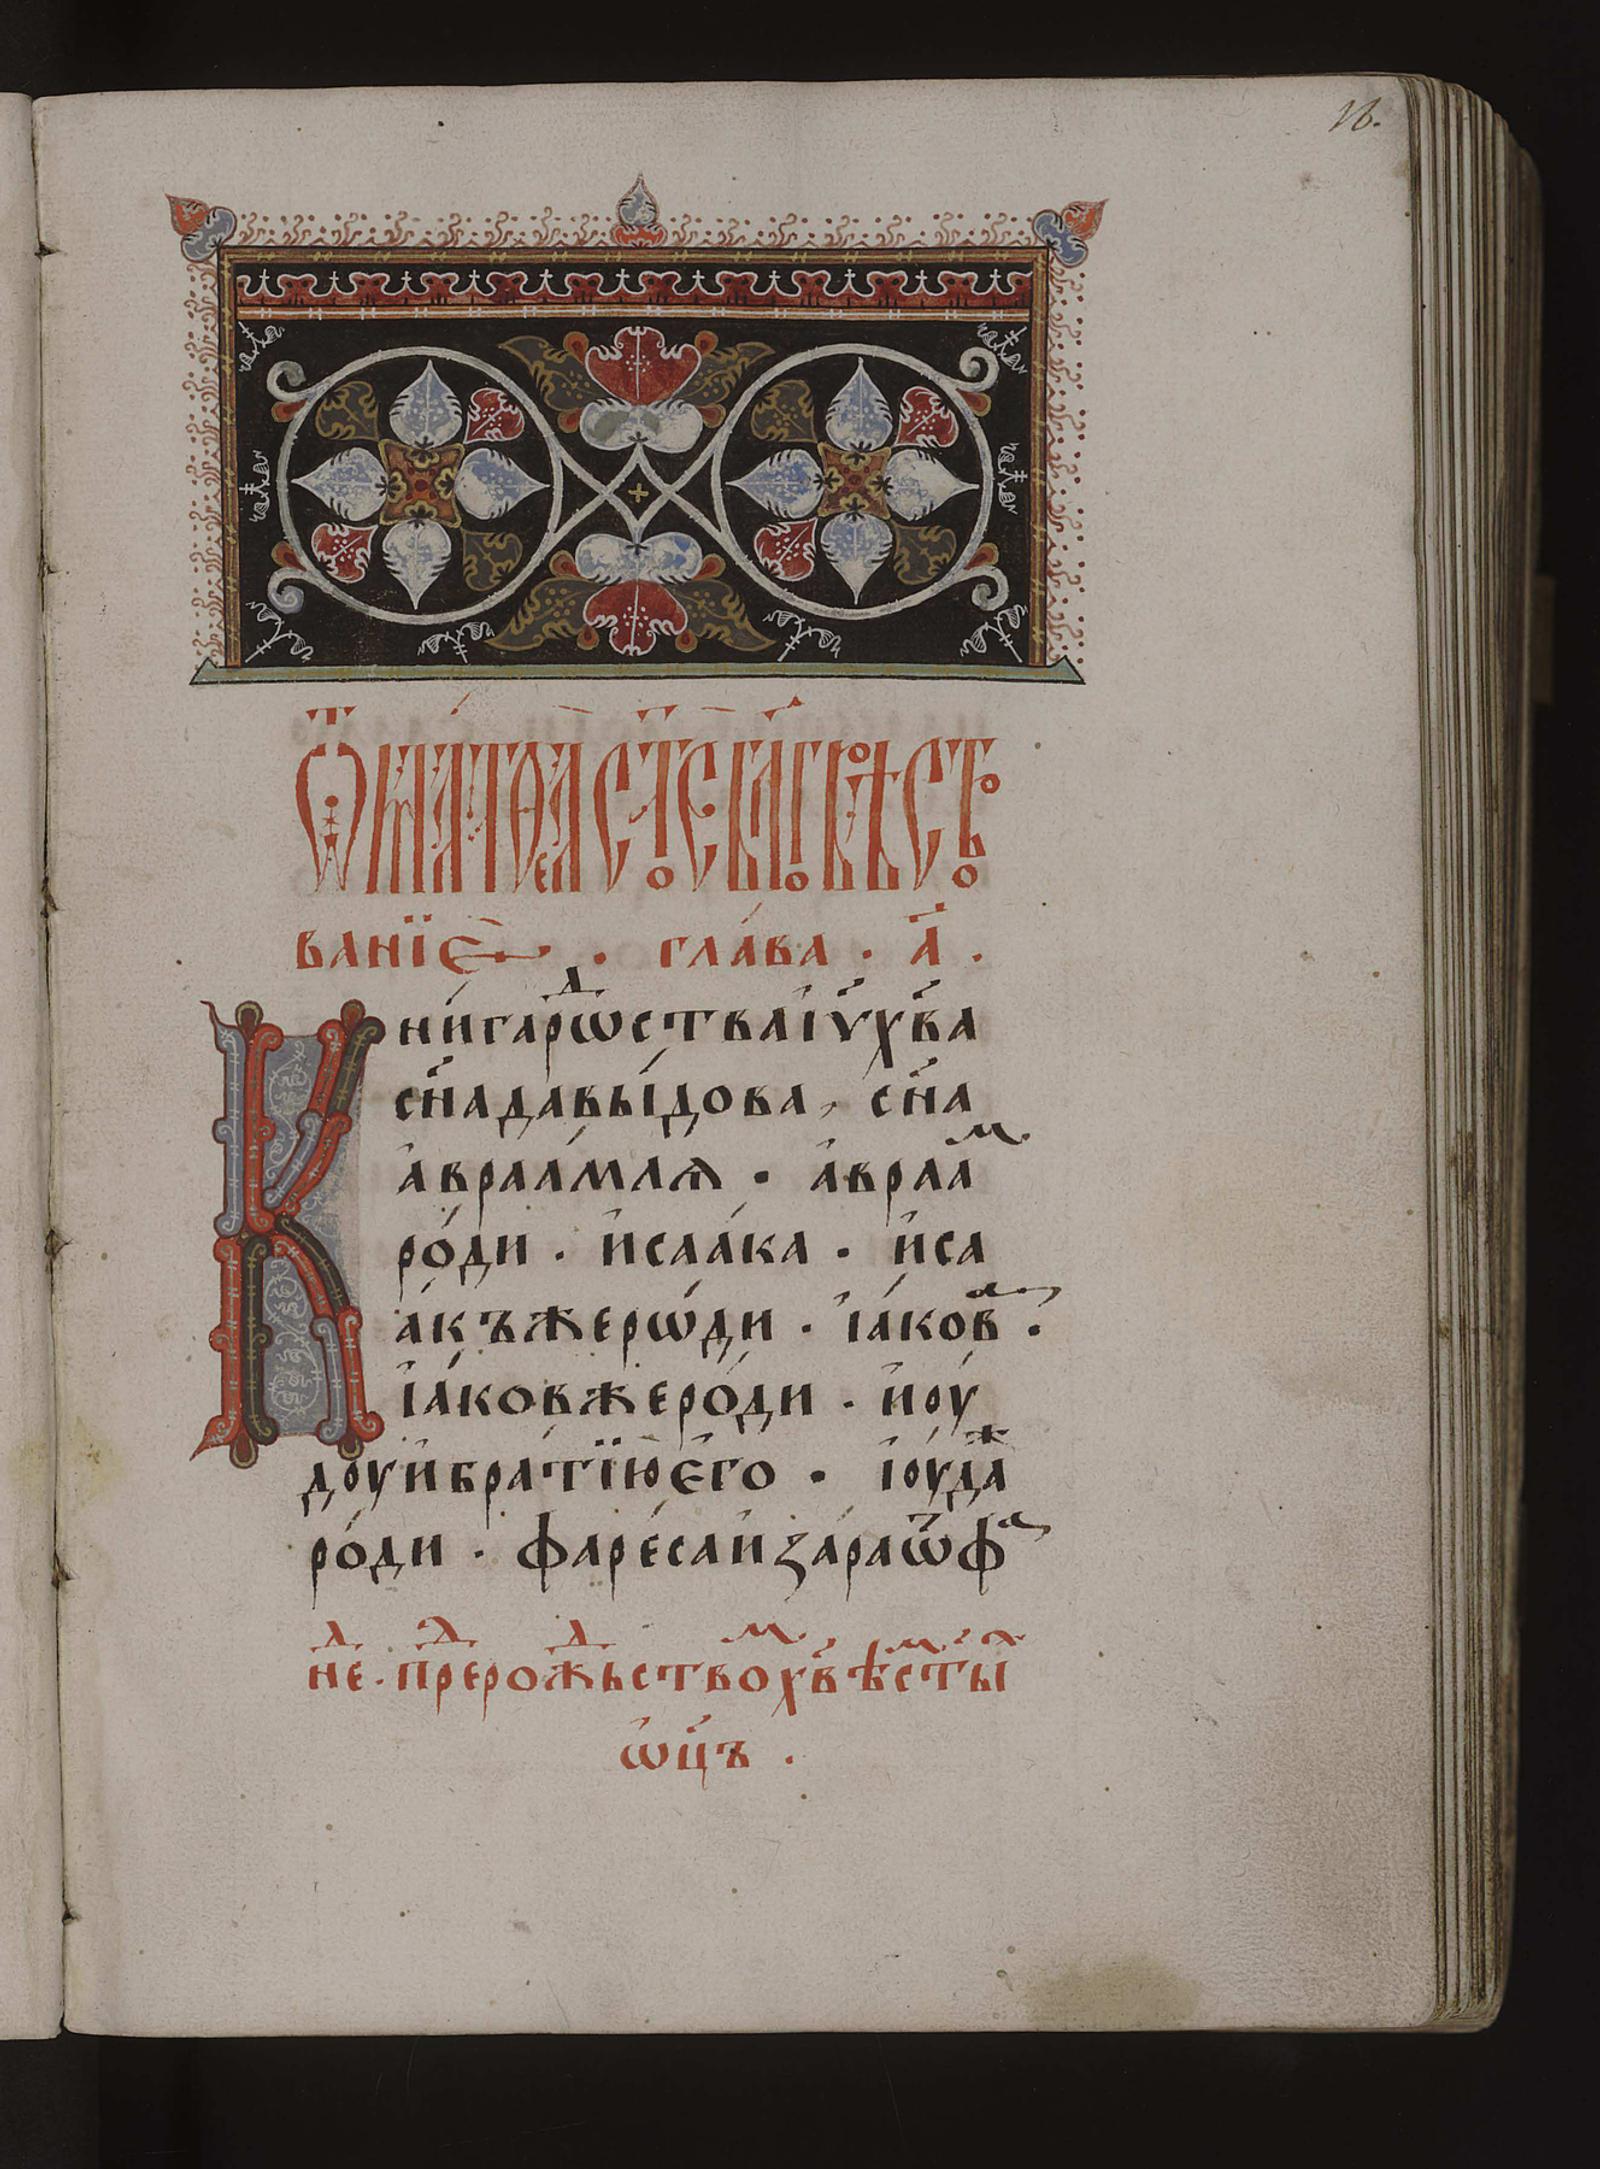 16.
Ѿ маⷮѳеа ст҃ое бл҃говѣство
ванїе · глава · а҃ ·
Книгарѡⷣства і҃ѵ х҃ва
сн҃а давыдова, сн҃а
авраамля · авраⷨа
роди · исаака · иса
акъжерѡди · іаковⷶ ·
іаковжероди · иоу
доуибратїюего · іоудаⷤ
роди · фаресаизараѿфⷶ
неⷣ · преⷣ рожⷣьствоⷨ х҃вѣⷨ ст҃ыⷯ
ѡц҃ъ ·